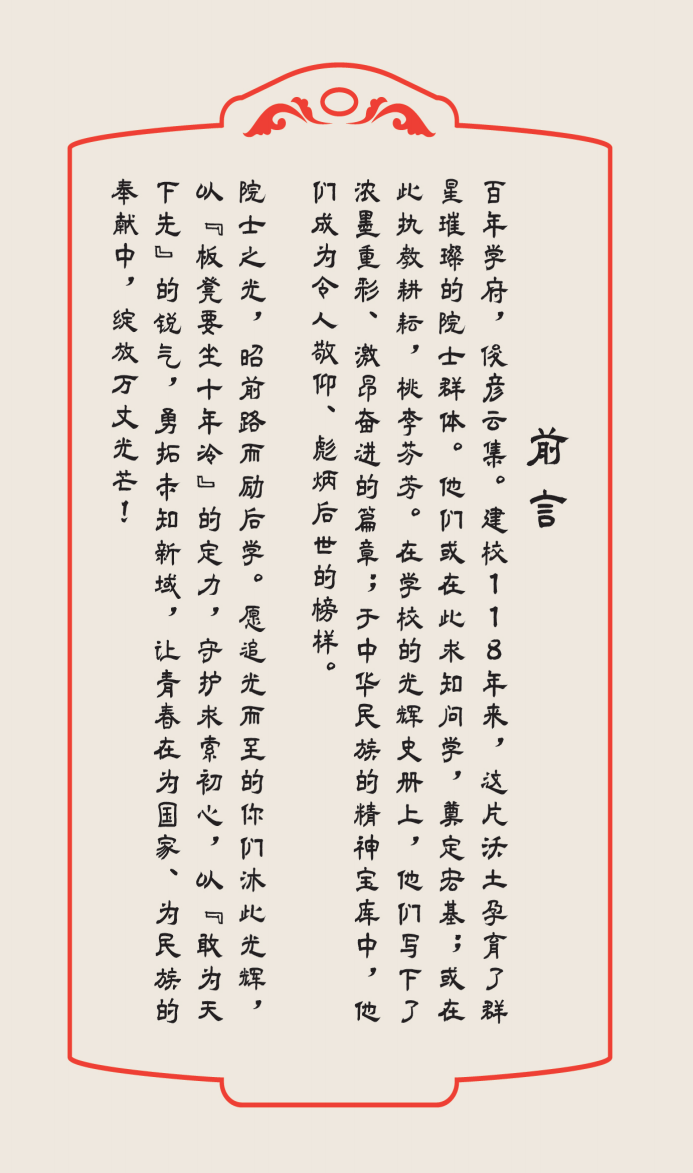 前言
百年学府，俊彦云集。建校118年来，这片沃土孕育了群
星璀璨的院士群体。他们或在此求知问学，奠定宏基；或在
此执教耕耘，桃李芬芳。在学校的光辉史册上，他们写下了
浓墨重彩、激昂奋进的篇章；于中华民族的精神宝库中，他
们成为令人敬仰、彪炳后世的榜样。
院士之光，昭前路而励后学。愿追光而至的你们沐此光辉，
以『板凳要坐十年冷』的定力，守护求索初心，以『敢为天
下先』的锐气，勇拓未知新域，让青春在为国家、为民族的
奉献中，绽放万丈光芒！